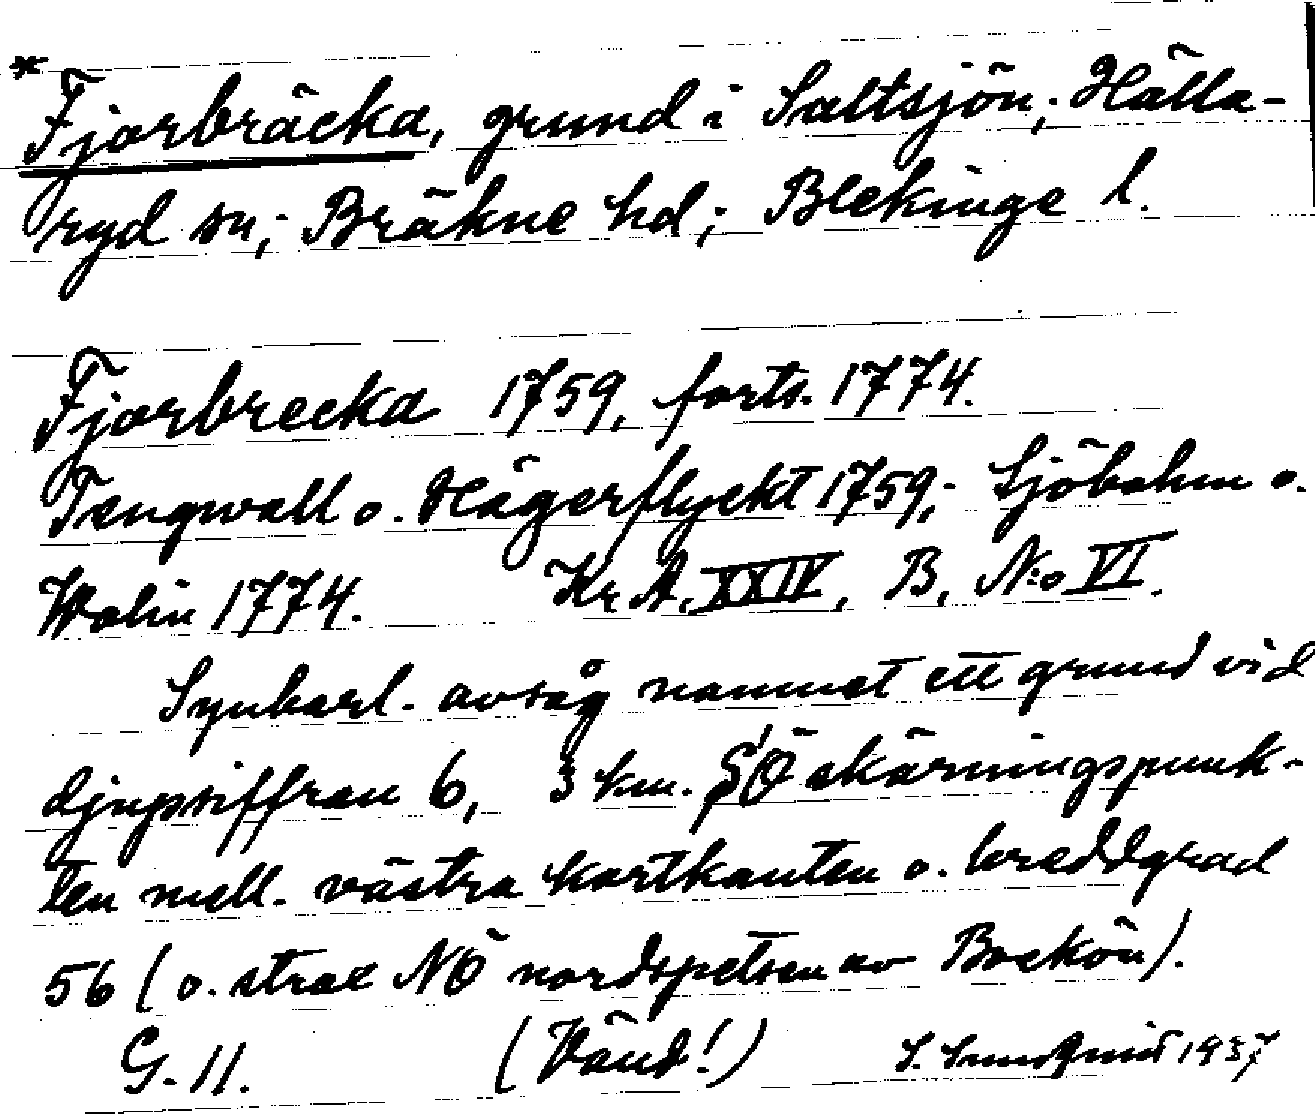 *Fjorbräcka, grund i Saltsjön; Hälla-
ryd sn; Bräkne hd; Blekinge l.
Fjorbrecka 1759, forts. 1774.
Tengwall o. Hägerflyckt 1759; Sjöbohm o.
Wolin 1774. Kr A. XXIV, B, N:o VI.
Synbarl. avsåg namnet ett grund vid
djupsiffran 6, 3 km. S'Ö skärningspunk-
ten mell. västra kartkanten o. breddgrad
56 (o. strax NÖ nordspetsen av Bockön).
G. 11. (Vänd!) 1937